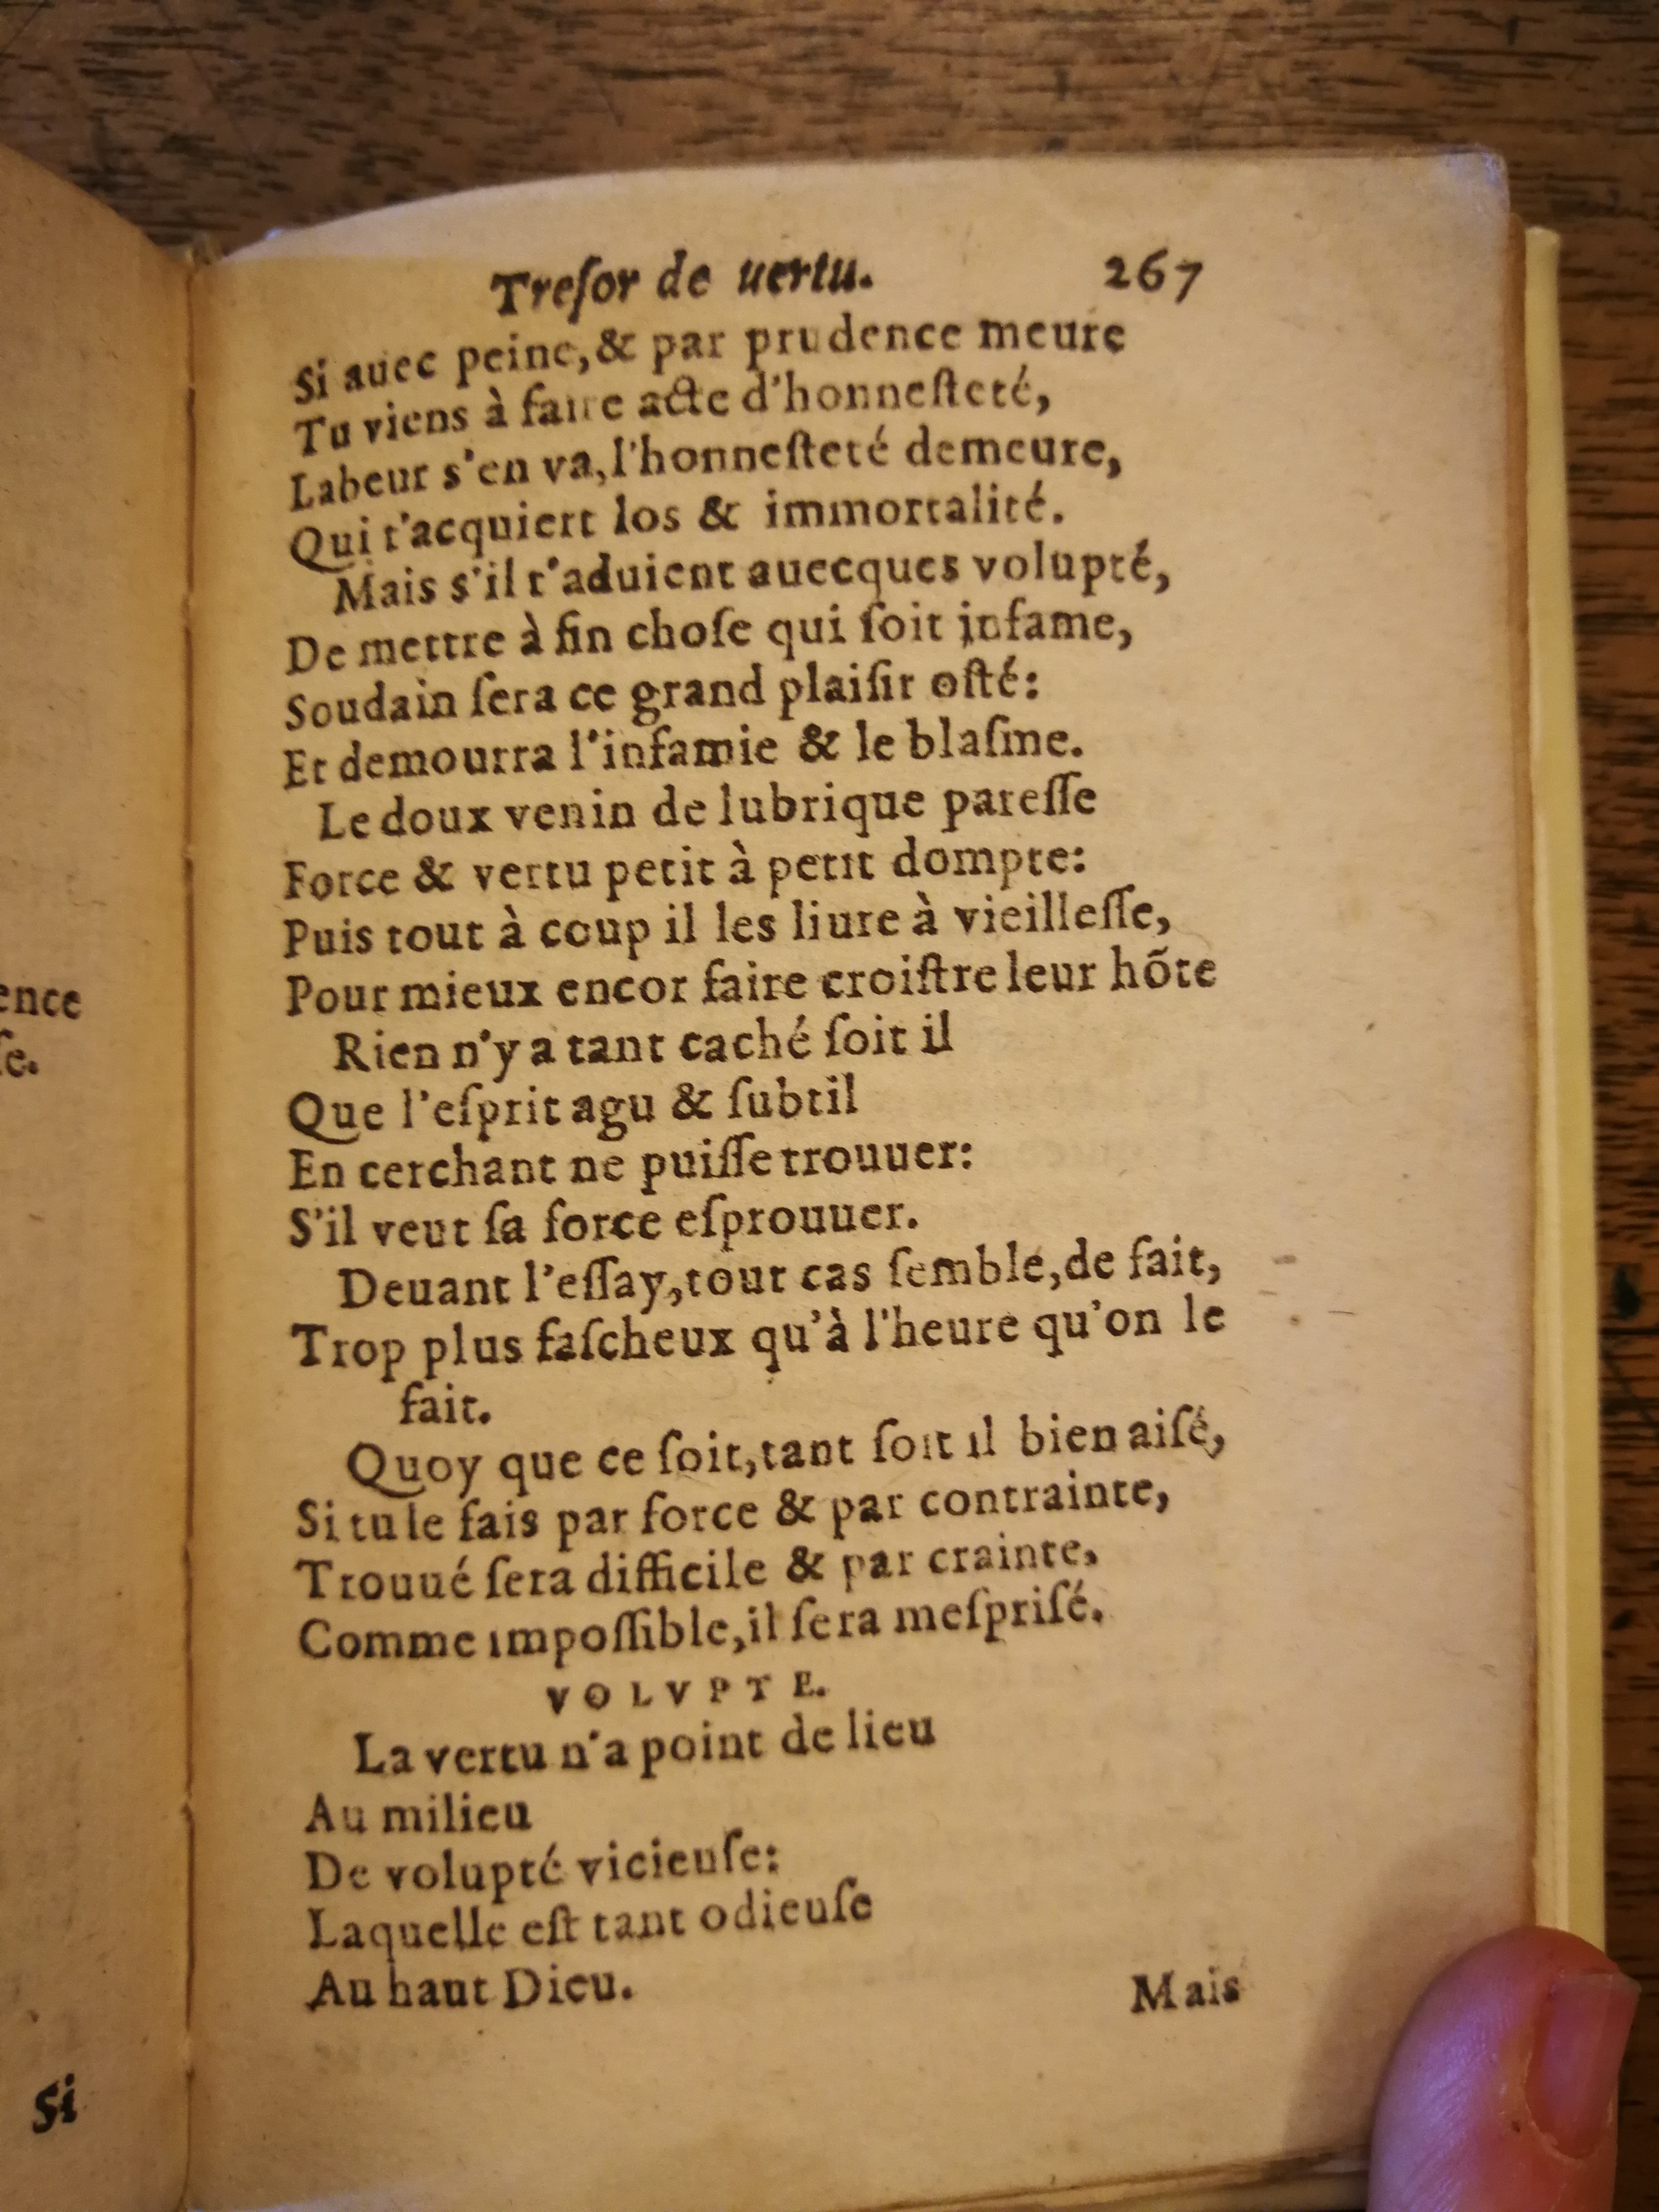 ence
ſe.
Si
Treſor de uertu. 267
Si auec peine,& par prudence meure
Tu viens à faire acte d'honneſteté,
Labeur s'en va,l'honneſteté demeure,
Qui t'acquiert los & immortalité.
Mais s'il t'aduient auecques volupté,
De mettre à fin choſe qui ſoit infame,
Soudain ſera ce grand plaiſir oſté:
Et demourra l'infamie & le blaſme.
Le doux venin de lubrique pareſſe
Force & vertu petit à petit dompte:
Puis tout à coup il les liure à vieilleſſe,
Pour mieux encor faire croiſtre leur hõte
Rien n'y a tant caché ſoit il
Que l'eſprit agu & ſubtil
En cerchant ne puiſſe trouuer:
S'il veut ſa force eſprouuer.
Deuant l'eſſay,tout cas ſemble,de fait,
Trop plus faſcheux qu'à l'heure qu'on le
fait.
Quoy que ce ſoit,tant ſoit il bien aiſé,
Si tu le fais par force & par contrainte,
Trouué ſera difficile & par crainte,
Comme impoſſible,il ſera meſpriſé.
VOLVPTE.
La vertu n'a point de lieu
Au milieu
De volupté vicieuſe:
Laquelle eſt tant odieuſe
Au haut Dieu.
Mais